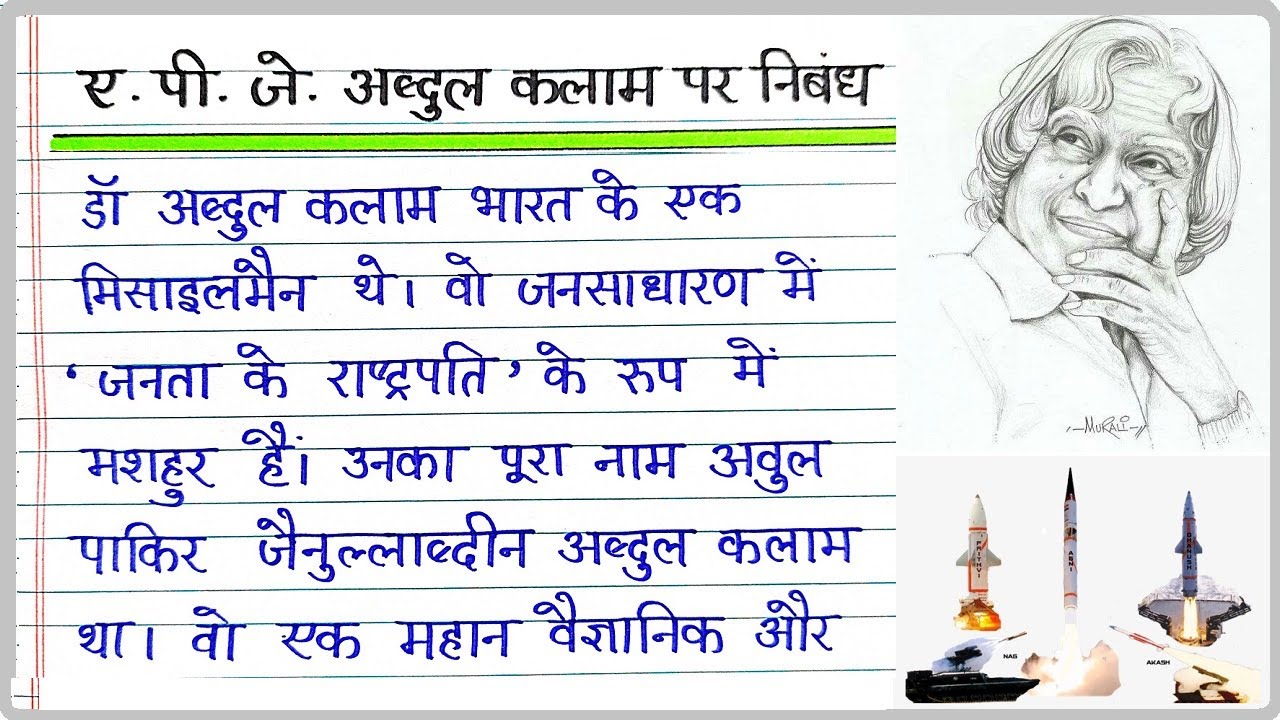 ए. पी. जे. अब्दुल कलाम पर निबंध
डॉ अब्दुल कलाम भारत के एक
मिसाइलमैन थे। वो जनसाधारण में
‘जनता के राष्ट्रपति’ के रुप में
मशहुर हैं। उनका पूरा नाम अवुल
पाकिर जैनुल्लाब्दीन अब्दुल कलाम
था। वो एक महान वैज्ञानिक और
-MURALI-
PRITHVI
AGNI
DHANUSH
NAG
AKASH